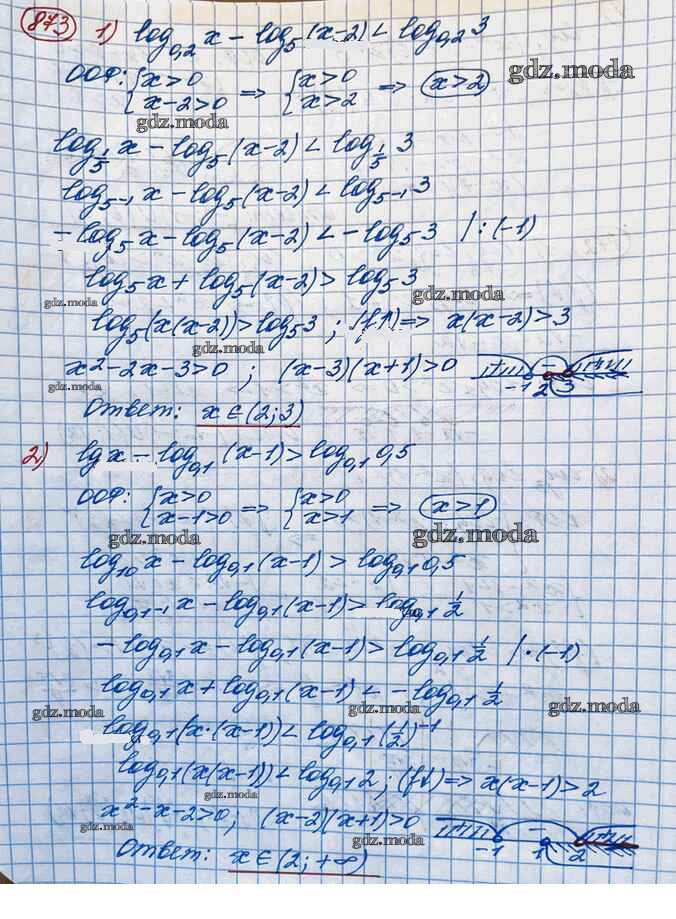 873 1) log₀,₂ x - log₅ (x-2) < log₀,₂ 3
ООФ: { x>0 x-2>0 => { x>0 x>2 => x>2 gdz.moda
gdz.moda
log_1/5 x - log₅ (x-2) < log_1/5 3
log₅-₁ x - log₅ (x-2) < log₅-₁ 3
- log₅ x - log₅ (x-2) < - log₅ 3 /:(-1)
log₅ x + log₅ (x-2) > log₅ 3
gdz.moda gdz.moda
log₅ (x(x-2)) > log₅ 3; (f↑) => x(x-2) > 3
gdz.moda
x² - 2x - 3 > 0; (x-3)(x+1) > 0 + - + -1 2 3
gdz.moda
Ответ: x ∈ (2; 3)
2) lg x - log₀,₁ (x-1) > log₀,₁ 0,5
ООФ: { x>0 x-1>0 => { x>0 x>1 => x>1
gdz.moda gdz.moda
log₁₀ x - log₀,₁ (x-1) > log₀,₁ 0,5
log₀,₁-₁ x - log₀,₁ (x-1) > log₀,₁ 1/2
- log₀,₁ x - log₀,₁ (x-1) > log₀,₁ 1/2 /·(-1)
log₀,₁ x + log₀,₁ (x-1) < - log₀,₁ 1/2
gdz.moda gdz.moda
log₀,₁ (x·(x-1)) < log₀,₁ (1/2)⁻¹
log₀,₁ (x(x-1)) < log₀,₁ 2; (f↓) => x(x-1) > 2
gdz.moda
x² - x - 2 > 0; (x-2)(x+1) > 0 + - + -1 1 2
gdz.moda gdz.moda
Ответ: x ∈ (2; +∞)